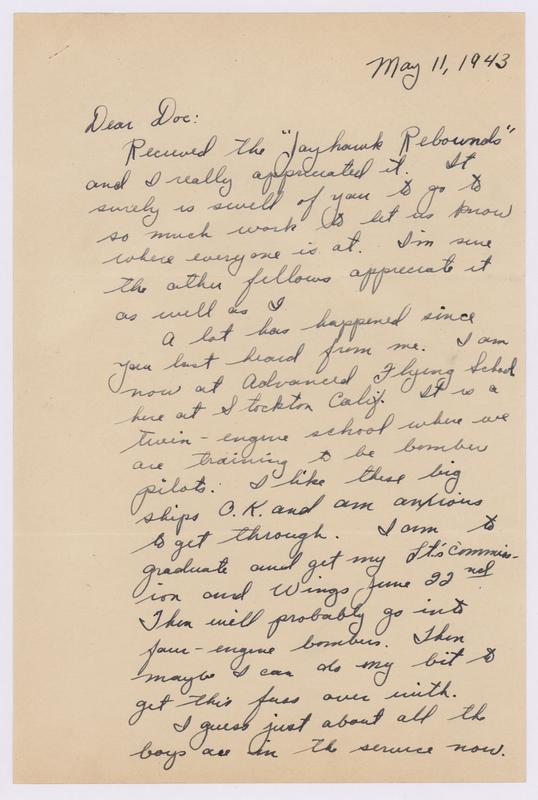 May 11, 1943
Dear Doc:
Recieved the "Jayhawk Rebounds"
and I really appreciated it. It
surely is swell of you to go to
so much work to let us know
where everyone is at. I'm sure
the other fellows appreciate it
as well as I.
A lot has happened since
you last heard from me. I am
now at Advanced Flying School
here at Stockton Calif. It is a
twin-engine school where we
are training to be bomber
pilots. I like these big
ships O.K. and am anxious
to get through. I am to
graduate and get my Lt's commiss-
ion and Wings June 22nd.
Then we'll probably go into
four-engine bombers. Then
maybe I can do my bit to
get this fuss over with.
I guess just about all the
boys are in the service now.